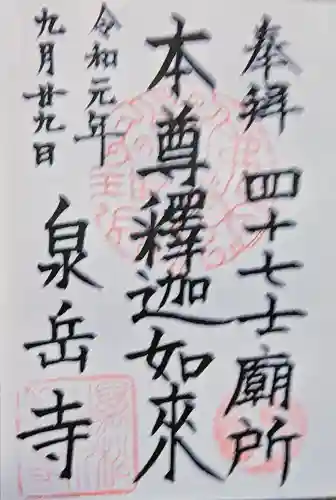 奉拜 四十七士廟所
本尊釋迦如來
令和元年
九月廿九日
泉岳寺